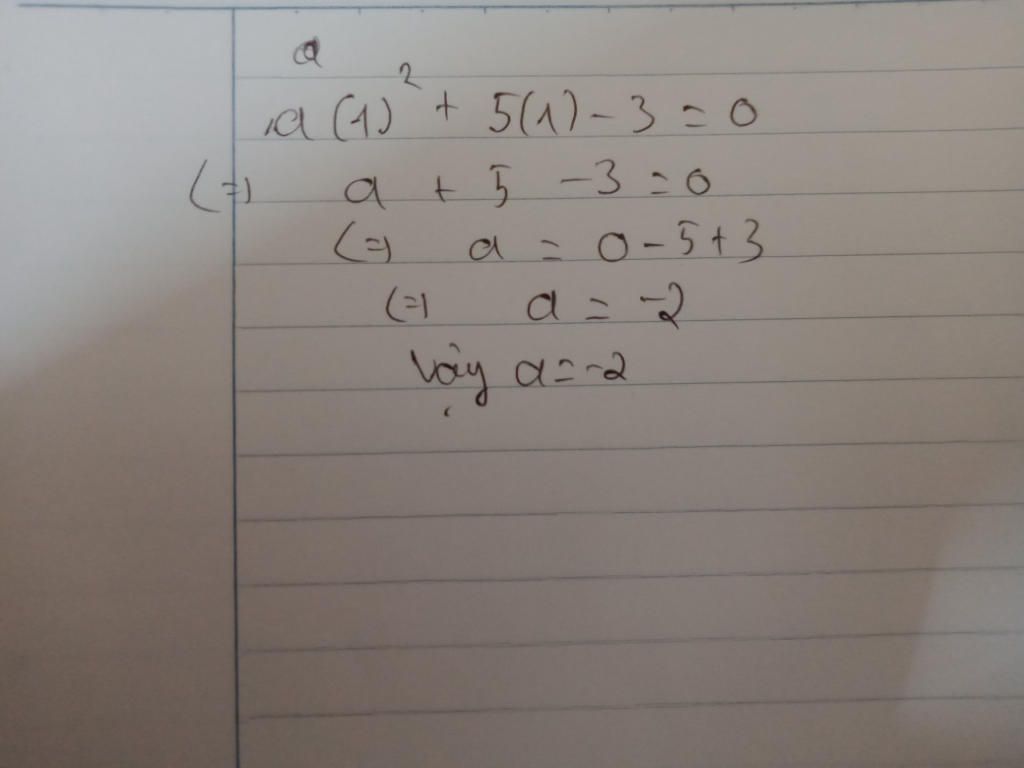 a
a(1)² + 5(1) - 3 = 0
(=) a + 5 - 3 = 0
(=) a = 0 - 5 + 3
(=) a = -2
Vậy a = -2